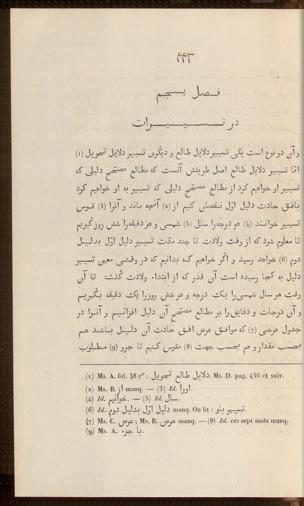 ۴۴۳
فصل پنجم
در تسییرات
و آن دو نوع است یکی تسییر دلایل طالع و دیگری تسییر دلایل تحویل (۱)
امّا تسییر دلایل طالع اصل طریقش آنست که مطالع مصحّح دلیلی که
تسییر او خواهیم کرد از مطالع مصحّح دلیلی که تسییر به او خواهیم کرد
بافق حادث دلیل اوّل نقصان کنیم از (۲) آنچه ماند و آنرا (3) قوس
تسییر خوانند (4) هر درجه‌را سال (5) شمسی و هر دقیقه‌را شش روز گیریم
تا معلوم شود که از وقت ولادت تا چند مدّت تسییر دلیل اوّل بدلیل
دوم (6) خواهد رسید و اگر خواهیم که بدانیم که در وقتی معین تسییر
دلیل به کجا رسیده است آن قدر که از ابتداء ولادت گذشته تا آن
وقت هر سال شمسی‌را یک درجه و هر شش روزرا یک دقیقه بگیریم
و آن درجات و دقایق‌را بر مطالع مصحّح آن دلیل افزائیم و آنرا در
جدول عرضی (7) که موافق عرض افق حادث آن دلیل باشد هم
بحسب مقدار و هم بحسب جهت (8) مقوس کنیم تا جزو (9) مطلوب
(1) Ms. A. fol. 38 rº : دلایل طالع تحویل. Ms. D. pag. 436 et suiv.
(2) Ms. B. از manq. — (3) Id. اورا.
(4) Id. خوانیم. — (5) Id. سال.
(6) Id. دلیل اوّل بدلیل دوم manq. On lit : تسییر باو.
(7) Ms. C. عرض ; Ms. B. عرض manq. — (8) Id. ces sept mots manq.
(9) Ms. A. با جزء.